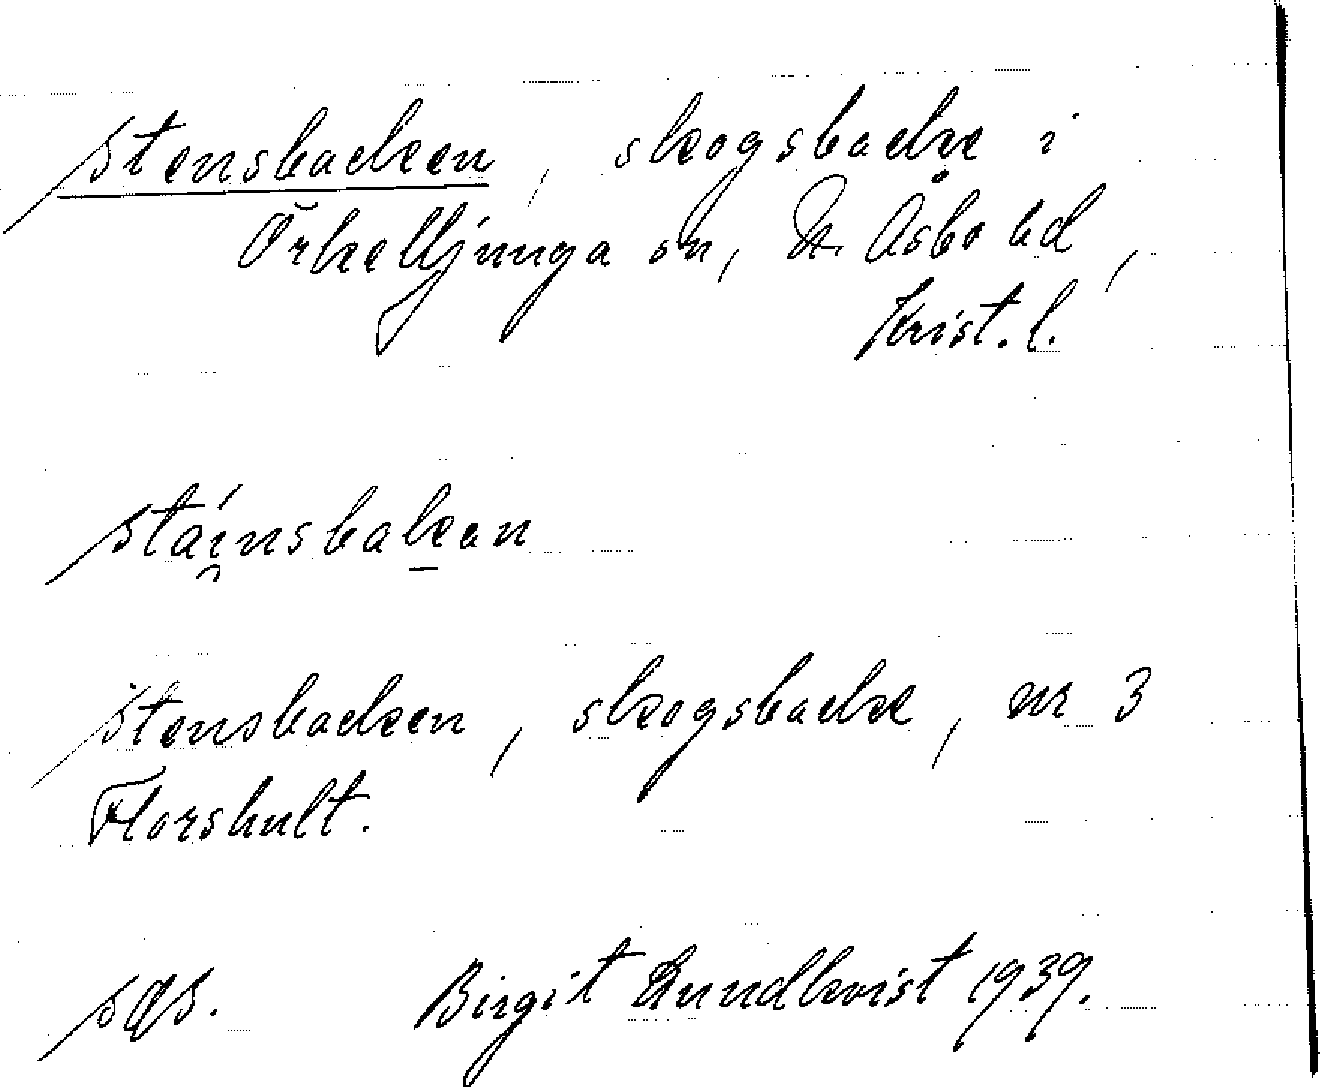 Stensbacken, skogsbacke i
Örkelljunga sn, N. Åsbo hd,
Krist. l.
Stáinsbakan
Stensbacken, skogsbacke, nr 3
Florshult.
Birgit Lundkvist 1939.